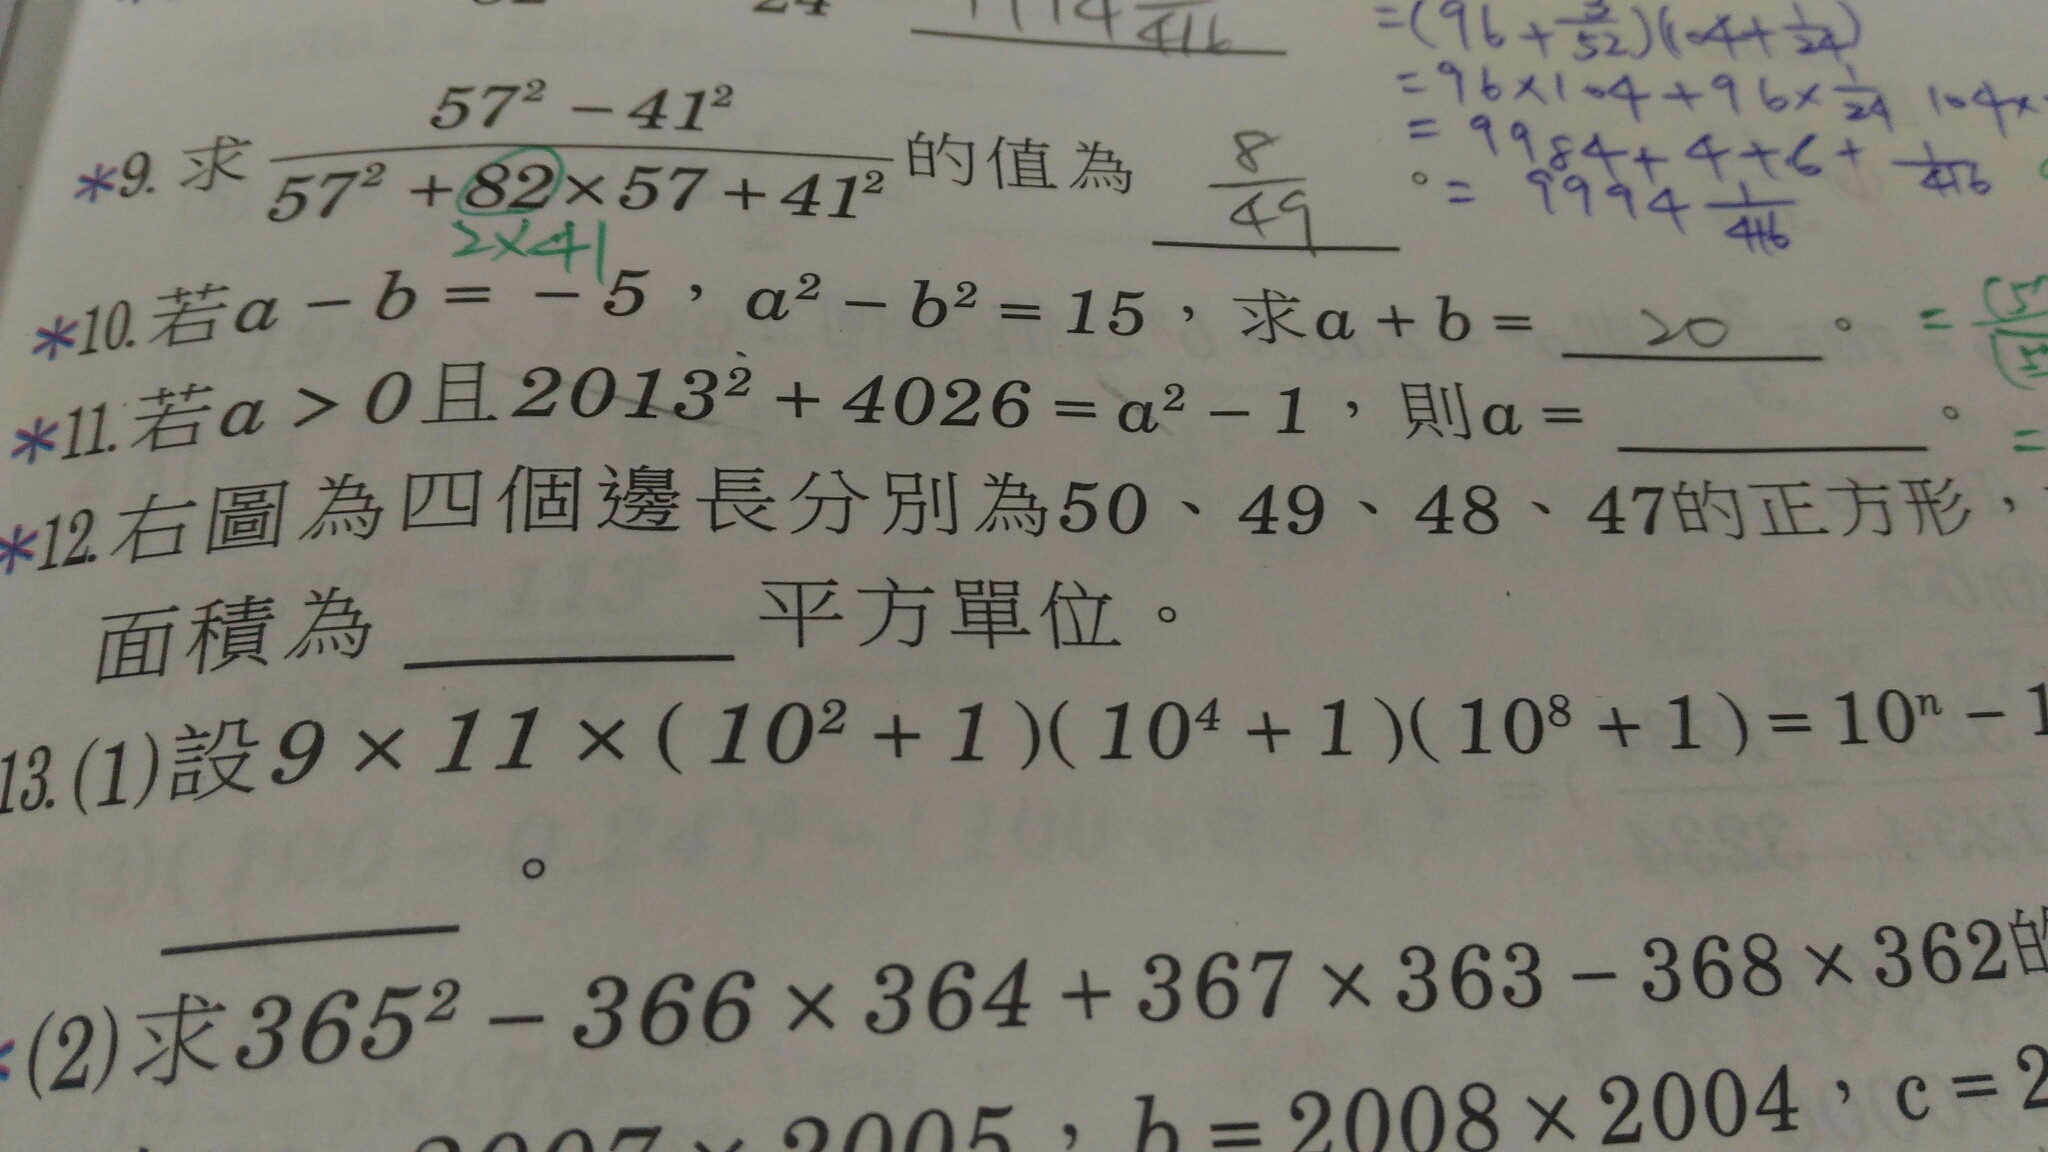 24
=(96+3/52)(104+1/24)
=96×104+96×1/24 104×
=9984+4+6+1/416
=9994 1/416
*9. 求 57² − 41² / 57² + 82 × 57 + 41² 的值為 8/49 。
2×41
*10. 若a − b = − 5，a² − b² = 15，求a + b = 20 。
*11. 若a > 0且2013² + 4026 = a² − 1，則a = ＿＿＿ 。
*12. 右圖為四個邊長分別為50、49、48、47的正方形，
面積為 ＿＿＿ 平方單位。
13. (1)設9 × 11 × ( 10² + 1 )( 10⁴ + 1 )( 10⁸ + 1 ) = 10ⁿ − 1
＿＿＿ 。
(2)求365² − 366 × 364 + 367 × 363 − 368 × 362的
2007 × 2005，b = 2008 × 2004，c = 2